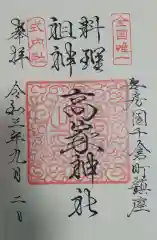 全国唯一
千倉町鎮座
料理
祖神
高家神社
式内社
奉拝
令和三年九月二日